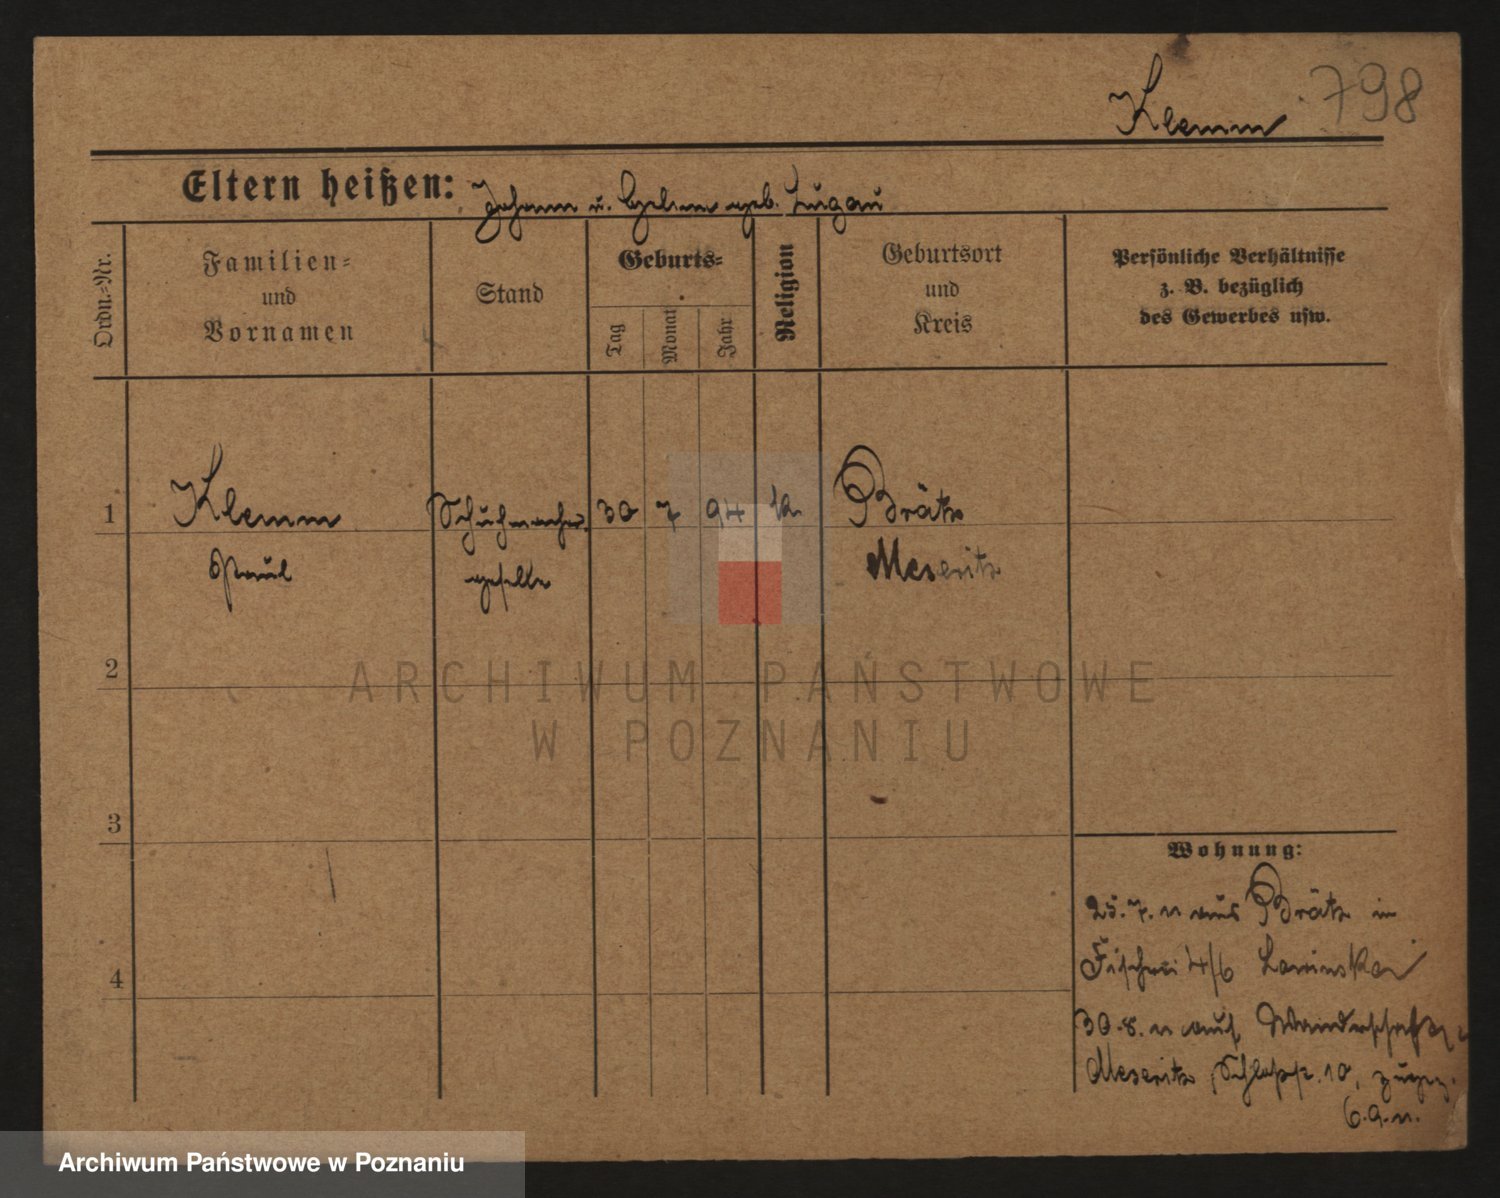 Klemm 798
Eltern heißen: Johann u. Helene geb. Lugau
Ordn.-Nr.
Familien-
und
Vornamen
Stand
Geburts-
Tag
Monat
Jahr
Religion
Geburtsort
und
Kreis
Persönliche Verhältnisse
z. B. bezüglich
des Gewerbes usw.
1 Klemm Schuhmacher 30 7 94 k. Brätz
Paul geselle Meseritz
2
ARCHIWUM PAŃSTWOWE
W POZNANIU
3
Wohnung:
25. 7. 11 aus Brätz in
Fischerei 4/6
4
30. 8. 11 auf Wanderschaft
Meseritz 10, zugez.
6. 9. 11.
Archiwum Państwowe w Poznaniu